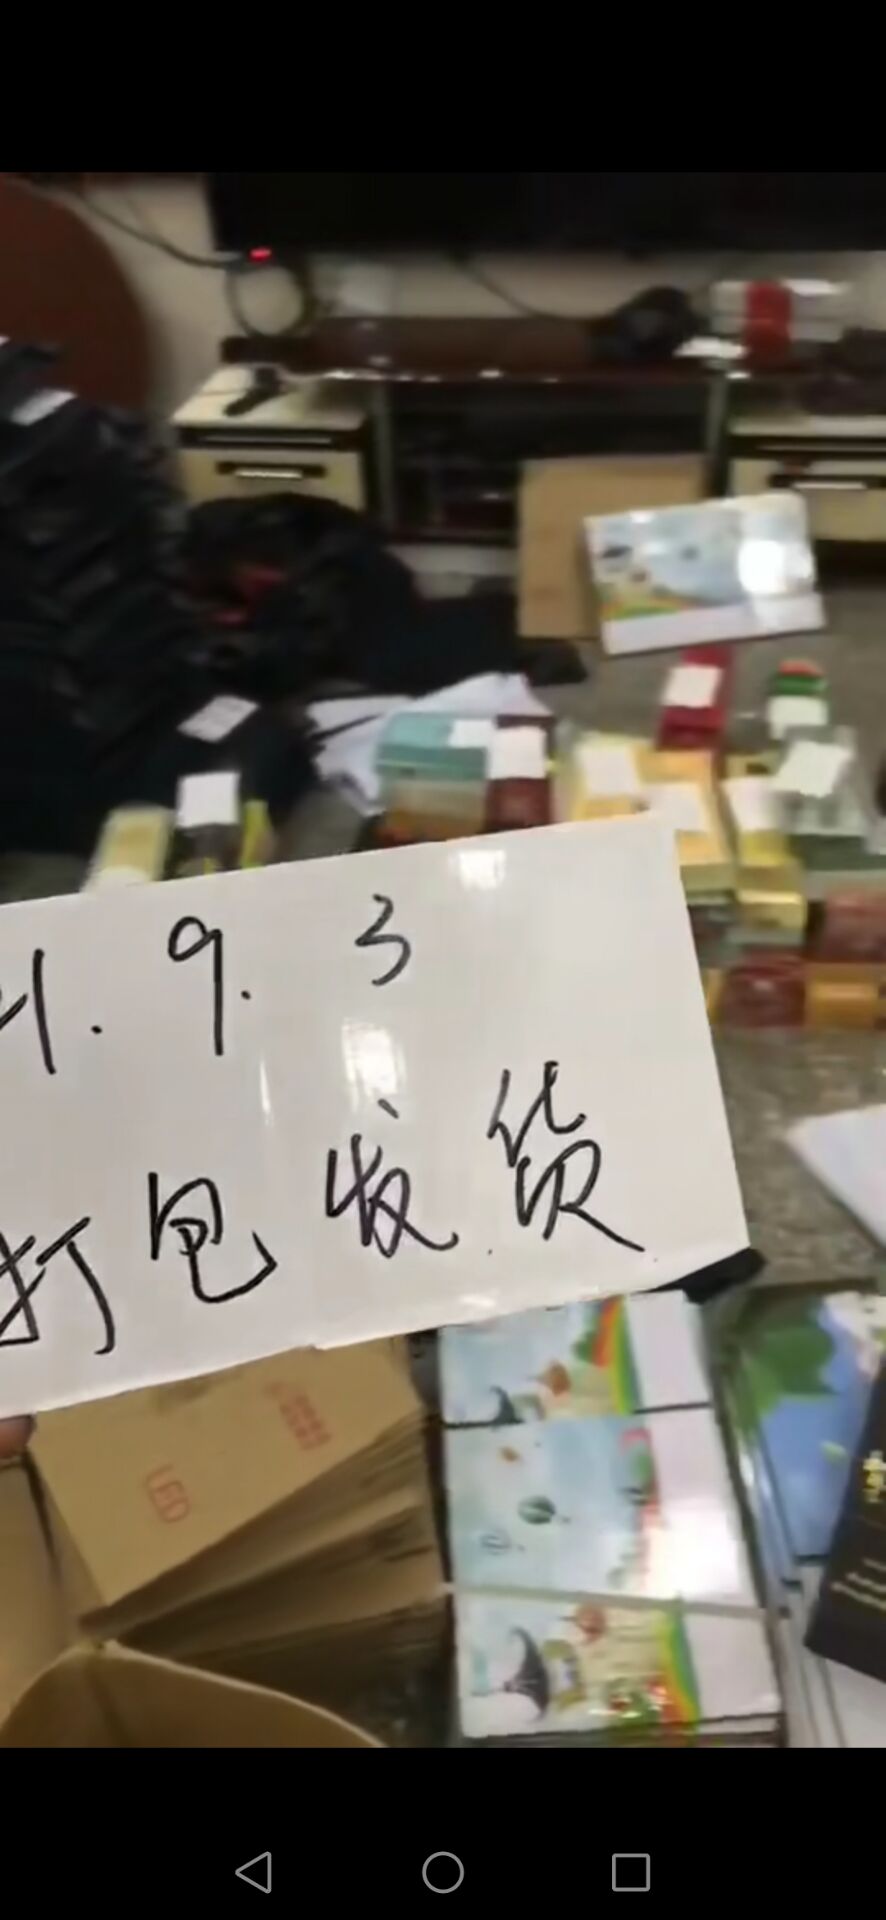 1. 9. 3
打包发货
LED